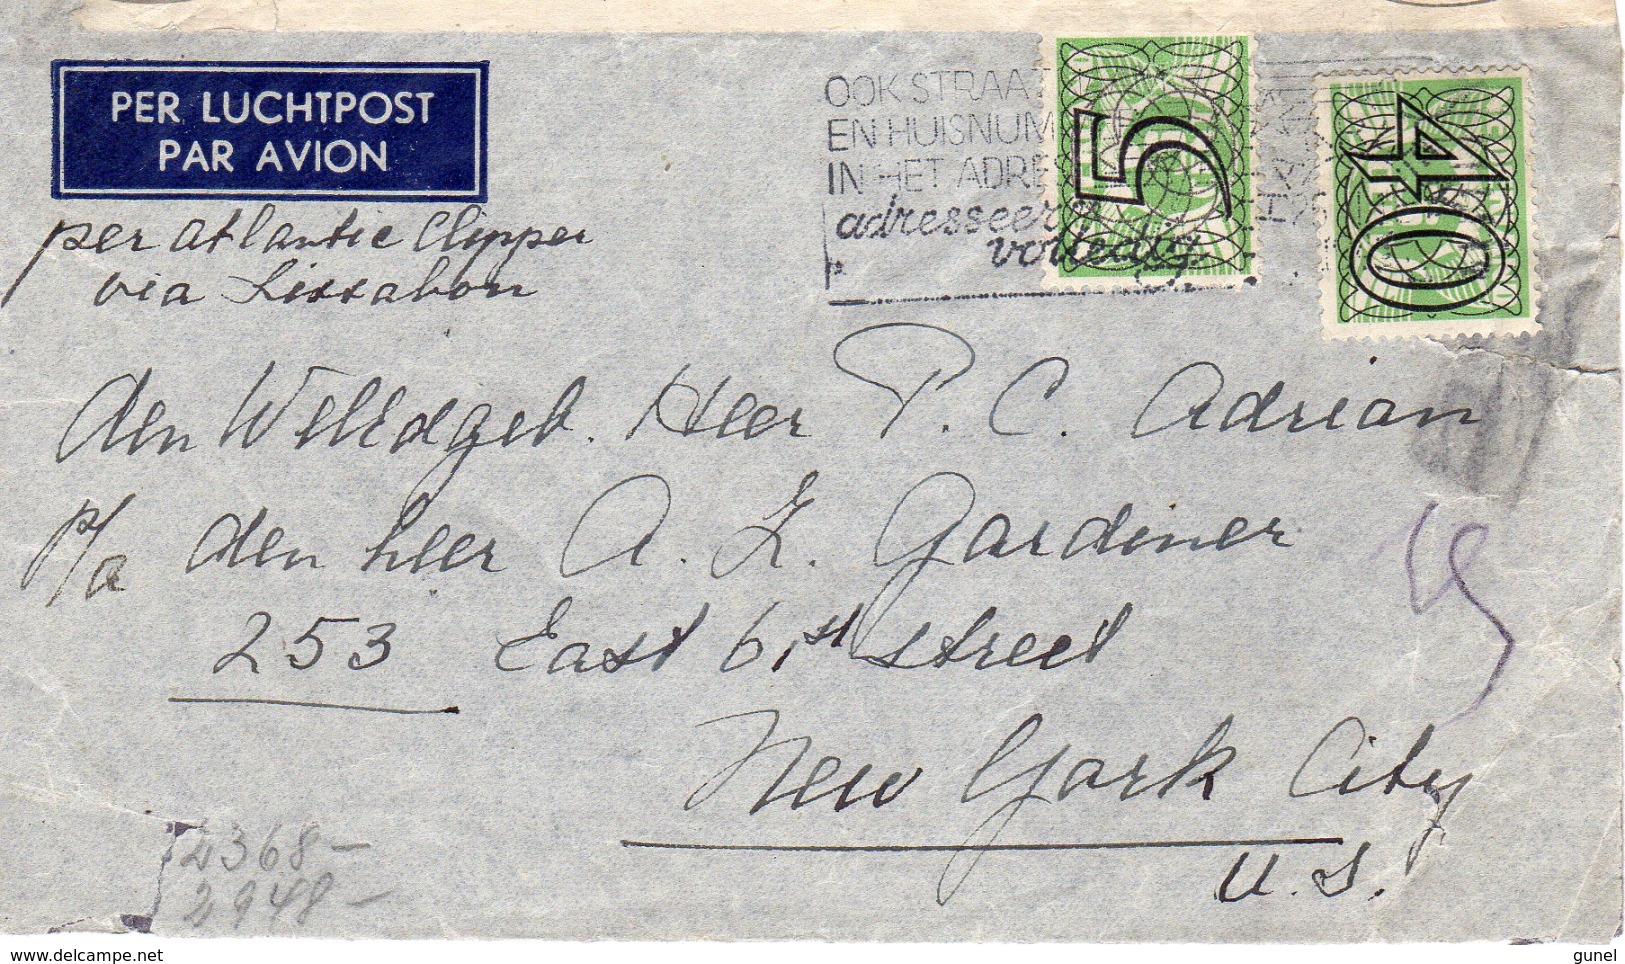 PER LUCHTPOST
PAR AVION
OOK STRAAT
EN HUISNUM
IN HET ADRE
adresseer
volledig
5
40
per Atlantic Clipper
via Lissabon
den WelEdgeb. Heer P. C. Adrian
p/a den heer A. L. Gardiner
253 East 61st street
New York City
U.S.
2368-
2948-
delcampe.net
gunel